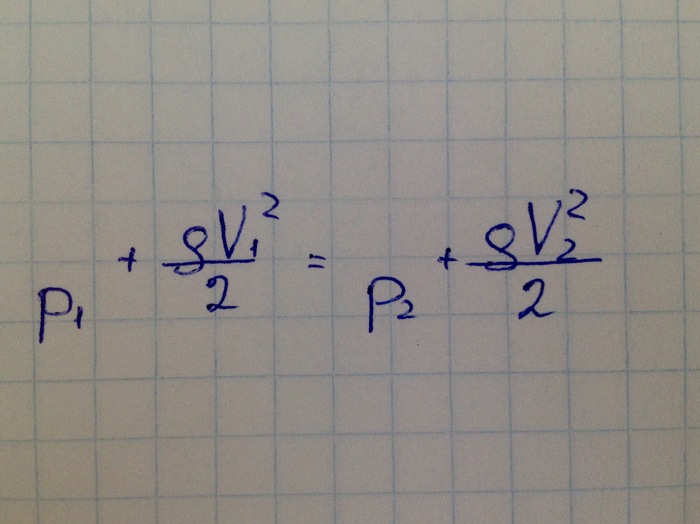 p₁ + ρV₁²/2 = p₂ + ρV₂²/2